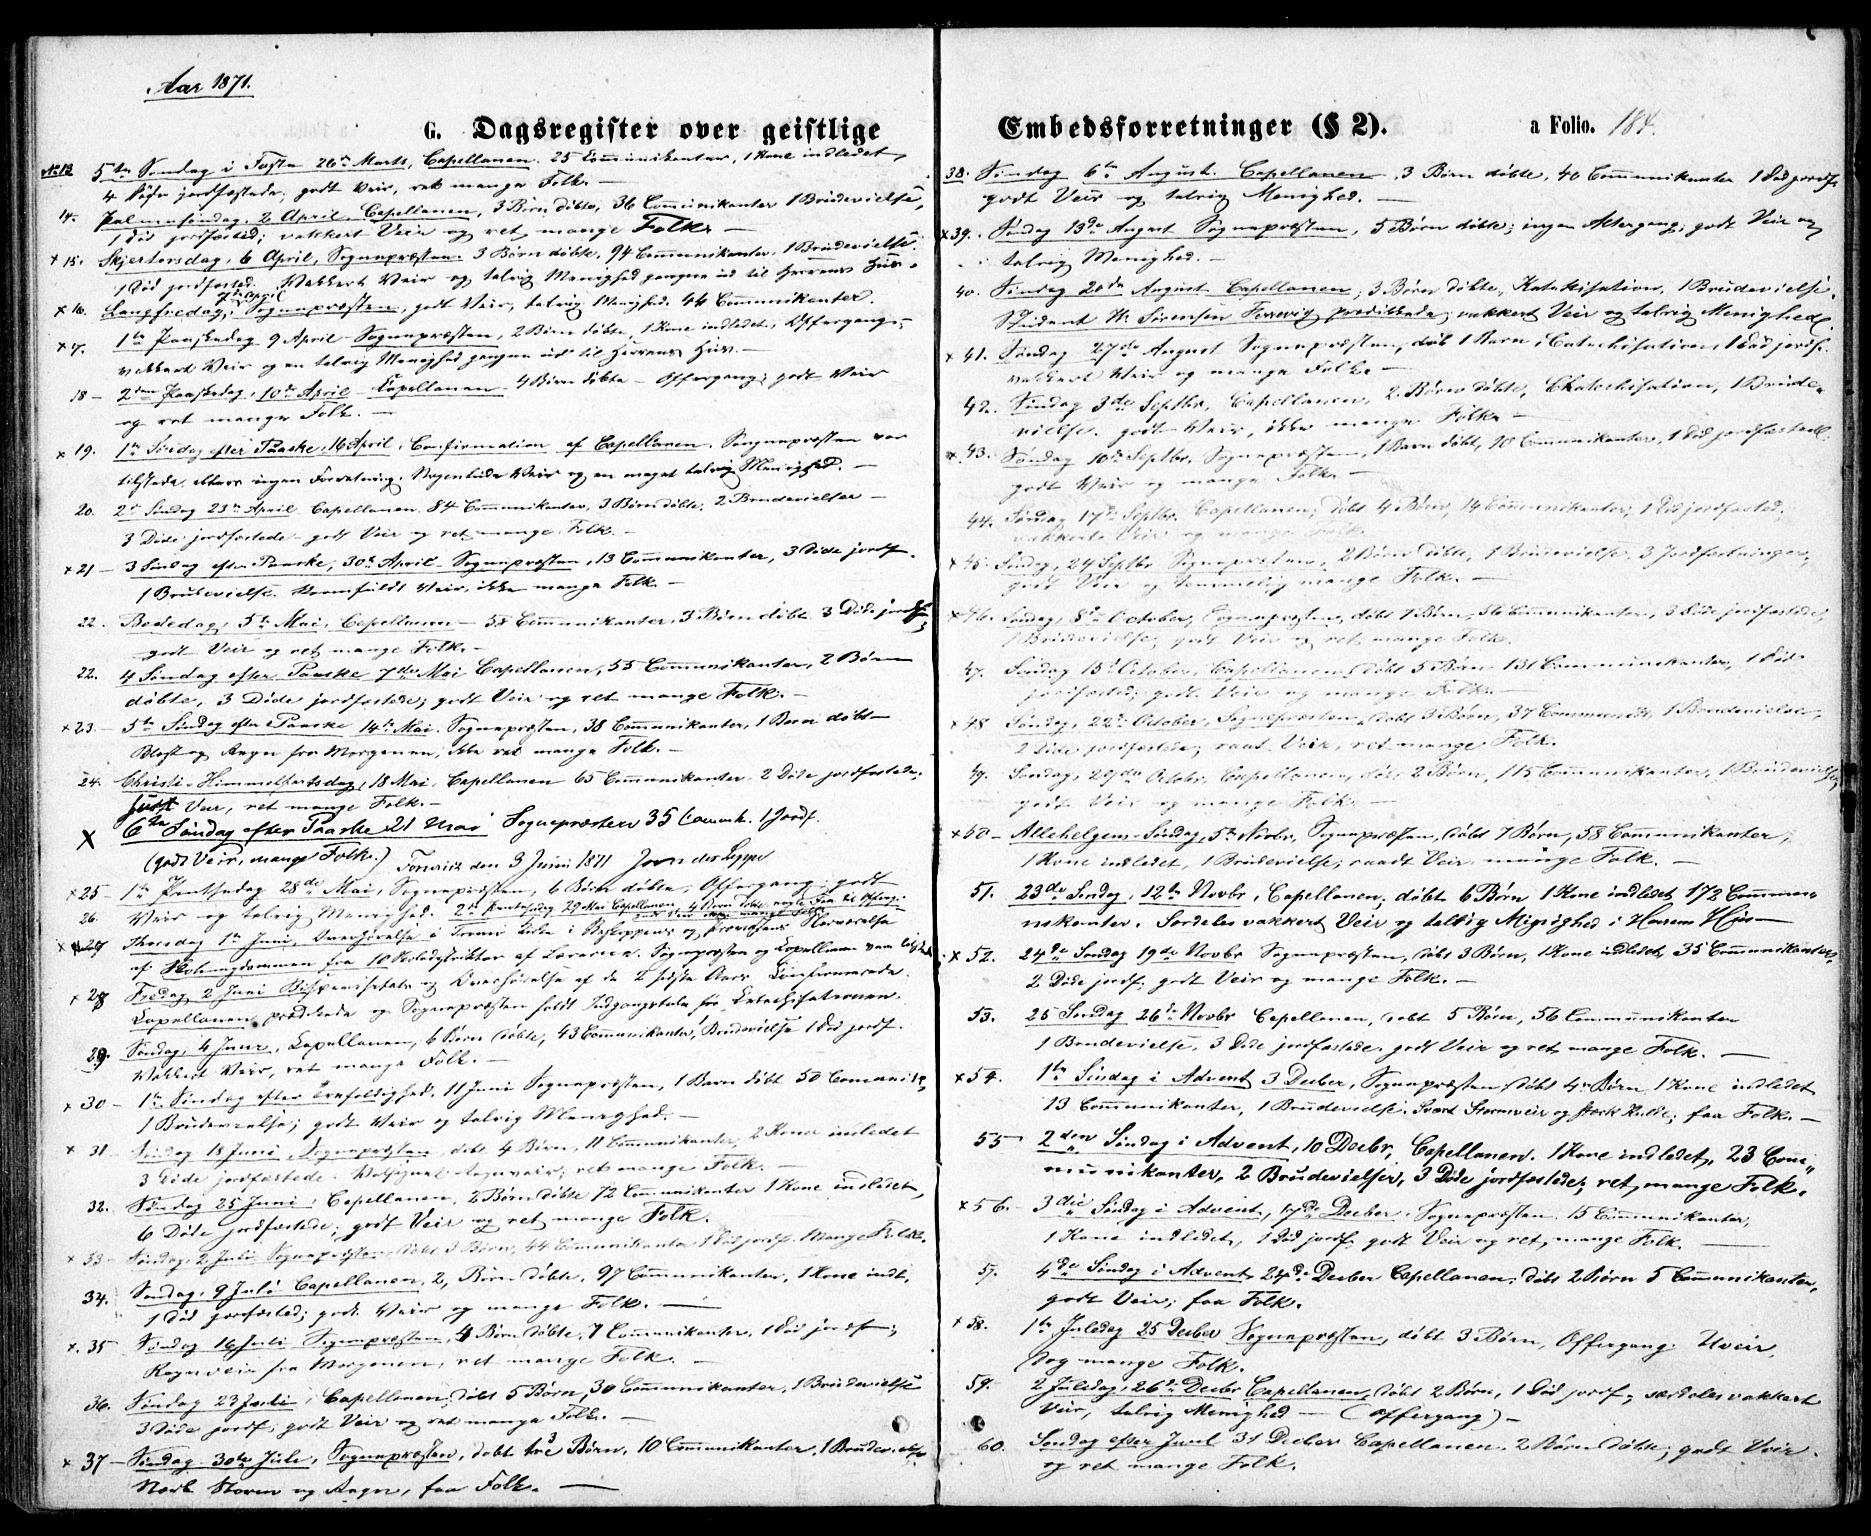 Aar 1871.
G. Dagsregister over geistlige
No 13 5te Søndag i Faste 26de Marts, Capellanen. 25 Communikanter, 1 Kone indledet,
4 jordfæstede; godt Veir, ret mange Folk. —
14. Palmesøndag. 2 April, Capellanen, 3 Børn døbte, 36 Communikanter 1 Brudevielse,
1 Død jordfæsted; vakkert Veir og ret mange Folk. —
x 15. Skjertorsdag, 6 April, Sognepræsten. 3 Børn døbte, 94 Communikanter, 1 Brudevielse.
1 Død jordfæsted. Vakkert Veir og talrig Menighed gangen ud til Herrens Hus.
x 16. Langfredag, 7de April Sognepræsten, godt Veir, talrig Menighed. 44 Communikanter.
x 17. 1te Paaskedag 9 April Sognepræsten, 2 Børn døbte, 1 Kone indledet, Offergang;
vakkert Veir og en talrig Menighed gangen ud til Herrens Hus. —
18 — 2den Paaskedag, 10de April — Capellanen — 4 Børn døbte — Offergang; godt Veir
og ret mange Folk. —
x 19. 1te Søndag efter Paaske, 16 April, Confirmation af Capellanen. Sognepræsten var
tilstede. Ellers ingen Forretning. Nogenlunde Veir og en meget talrig Menighed. —
20. 2de Søndag 23de April Capellanen 84 Communikanter, 3 Børn døbte, 2 Brudevielser —
3 Døde jordfæstede. godt Veir og ret mange Folk. —
x 21 — 3 Søndag efter Paaske, 30te April — Sognepræsten, 13 Communikanter, 3 Døde jordf.
1 Brudevielse. Veir, ikke mange Folk —
22. Bededag, 5te Mai, Capellanen — 58 Communikanter, 3 Børn døbte 3 Døde jordf.,
godt Veir og ret mange Folk. —
22. 4 Søndag efter Paaske 7de Mai Capellanen, 55 Communikanter, 2 Børn
døbte, 3 Døde jordfæstede; godt Veir og ret mange Folk. —
x 23. — 5te Søndag efter Paaske 14de Mai. Sognepræsten, 38 Communikanter, 1 Barn døbt —
Blæst og Regn fra Morgenen, ikke ret mange Folk. —
24. Christi-Himmelfartsdag, 18 Mai, Capellanen 65 Communikanter. 2 Døde jordfæstede.
Veir, ret mange Folk. —
X 6te Søndag efter Paaske 21 Mai Sognepræsten 35 Comm. 1 Jordf.
(godt Veir, mange Folk.) den 3 Juni 1871
x 25 — 1te Pintsedag 28de Mai, Sognepræsten, 6 Børn døbte; Offergang; godt
26. Veir og talrig Menighed. 2de Pintsedag 29 Mai Capellanen, 4 Børn døbte, Offerg.
x 27 Thorsdag 1te Juni, Overhørelse i Kirke i Biskoppens og Provstens Nærværelse
af fra 10 Skoledistrikter af Lærerne. Sognepræsten og Capellanen vare tilstede.
x 28 Fredag 2 Juni Bispevisitats og Overhørelse af de 2 sidste Aars Confirmerede.
Capellanen prædikede og Sognepræsten holdt Indgangstale for Catechisationen.
29. Søndag, 4 Juni, Capellanen, 6 Børn døbte, 43 Communikanter, 1 Brudevielse 1 Død jordf.
Vakkert Veir, ret mange Folk. —
x 30 — 1te Søndag efter Trefoldighed, 11 Juni Sognepræsten, 1 Barn døbt 50 Comunik.,
1 Brudevielse; godt Veir og talrig Menighed. —
x 31 — Søndag 18 Juni, Sognepræsten, døbt 4 Børn, 11 Communikanter, 2 Koner indledet
3 Døde jordfæstede. Velsignet Regnveir, ret mange Folk. —
32. Søndag 25 Juni, Capellanen, 2 Børn døbte 72 Communikanter 1 Kone indledet,
6 Døde jordfæstede; godt Veir og ret mange Folk.
x 33 — Søndag, 2 Juli Sognepræsten, døbt 3 Børn, 44 Communikanter 1 Død jordf. Mange Folk.
34. Søndag, 9 Juli Capellanen, 2, Børn døbte, 97 Communikanter, 1 Kone indl.,
1 Død jordfæsted; godt Veir og mange Folk. —
x. 35 Søndag 16 Juli Sognepræsten, 4 Børn døbte, 7 Communikanter, 1 Død jordf.;
Regnveir fra Morgenen, ret mange Folk. —
36. Søndag 23 Juli, Capellanen, døbt 5 Børn, 30 Communikanter, 1 Brudevielse
3 Døde jordf, godt Veir og ret mange Folk. —
x 37 — Søndag 30te Juli, Sognepræsten, døbt tre 3 Børn, 10 Communikanter, 1 Brudevielse
Stærk Storm og Regn, faa Folk. —
Embedsforretninger (§ 2).
a Folio. 184.
38. Søndag 6te August. Capellanen, 3 Børn døbte, 40 Communikanter 1 Død jordf.
godt Veir og talrig Menighed. —
x 39. Søndag 13de August Sognepræsten, 5 Børn døbte; ingen Altergang; godt Veir og
talrig Menighed. —
40. Søndag 20de August Capellanen; 3 Børn døbte, Katekisation, 1 Brudevielse.
Student Sørensen prædikede; vakkert Veir og talrig Menighed.
x 41. Søndag 27de August Sognepræsten, døb 1 Barn, Catechisation, 1 Død jordf.
vakkert Veir og mange Folk. —
42. Søndag 3de Septbr, Capellanen, 2 Børn døbte, Chatechisation, 1 Brude-
vielse. godt Veir, ikke mange Folk —
x 43. Søndag 10de Septbr. Sognepræsten, 1 Barn døbt, 10 Communikanter, 1 Død jordfæsted.
godt Veir og mange Folk. —
44. Søndag 17de Septbr. Capellanen, døbt 4 Børn, 14 Communikanter, 1 Død jordfæsted.
vakkert Veir og mange Folk.
x 45. Søndag, 24 Septbr Sognepræsten, 2 Børn døbte, 1 Brudevielse, 3 Jordfæstninger,
godt Veir og temmelig mange Folk. —
x 46. Søndag, 8de October, Sognepræsten, døbt 7 Børn, 56 Communikanter, 3 Døde jordfæstede,
1 Brudevielse; godt Veir og ret mange Folk.
47. Søndag 15de October, Capellanen, døbt 5 Børn 131 Communikanter, 1 Død
jordfæsted; godt Veir og mange Folk. —
x 48 Søndag, 22de October, Sognepræsten, døbt 3 Børn, 37 Communik, 1 Brudevielse,
2 Døde jordfæstede; raat Veir, ret mange Folk.
49. Søndag, 29de Octobr, Capellanen, døbt 2 Børn, 115 Communikanter, 1 Brudevielse,
godt Veir og mange Folk. —
x 50 — Allehelgens-Søndag, 5te Novbr, Sognepræsten, døbt 7 Børn, 58 Communikanter,
1 Kone indledet, 1 Brudevielse; raadt Veir mange Folk. —
51. 23de Søndag, 12te Novbr, Capellanen, døbt 6 Børn 1 Kone indledet 172 Commu-
nikanter. Særdeles vakkert Veir og talrig Menighed i Herrens Hus —
x 52. 24de Søndag 19de Novbr Sognepræsten, døbt 3 Børn, 1 Kone indledet, 35 Communikanter,
2 Døde jordf; godt Veir og mange Folk. —
53. 25 Søndag 26de Novbr Capellanen, døbt 5 Børn, 56 Communikanter
1 Brudevielse, 3 Døde jordfæstede. godt Veir og ret mange Folk. —
x 54. 1te Søndag i Advent 3 Decber, Sognepræsten, døbt 4 Børn, 1 Kone indledet
13 Communikanter, 1 Brudevielse. Svært Stormveir og stærk Kulde; faa Folk. —
55 2den Søndag i Advent, 10 Decbr, Capellanen. 1 Kone indledet, 23 Com-
munikanter, 2 Brudevielser, 3 Døde jordfæstede; ret mange Folk.
x 56. — 3die Søndag i Advent, 17de Decber. Sognepræsten. 15 Communikanter,
1 Kone indledet, 1 Død jordf, godt Veir og ret mange Folk. —
57. 4de Søndag i Advent 24de Decber Capellanen, døbt 2 Børn 5 Communikanter,
godt Veir; faa Folk.
x 58. 1te Juledag 25 Decber Sognepræsten, døbt 3 Børn, Offergang. Uveir,
dog mange Folk.
59. 2 Juledag, 26de Decbr Capellanen, døbt 2 Børn, 1 Død jordf, særdeles vakkert
Veir, talrig Menighed — (Offergang) —
60. Søndag efter Juul 31 Decber Capellanen. 2 Børn døbte; godt Veir
og ret mange Folk.